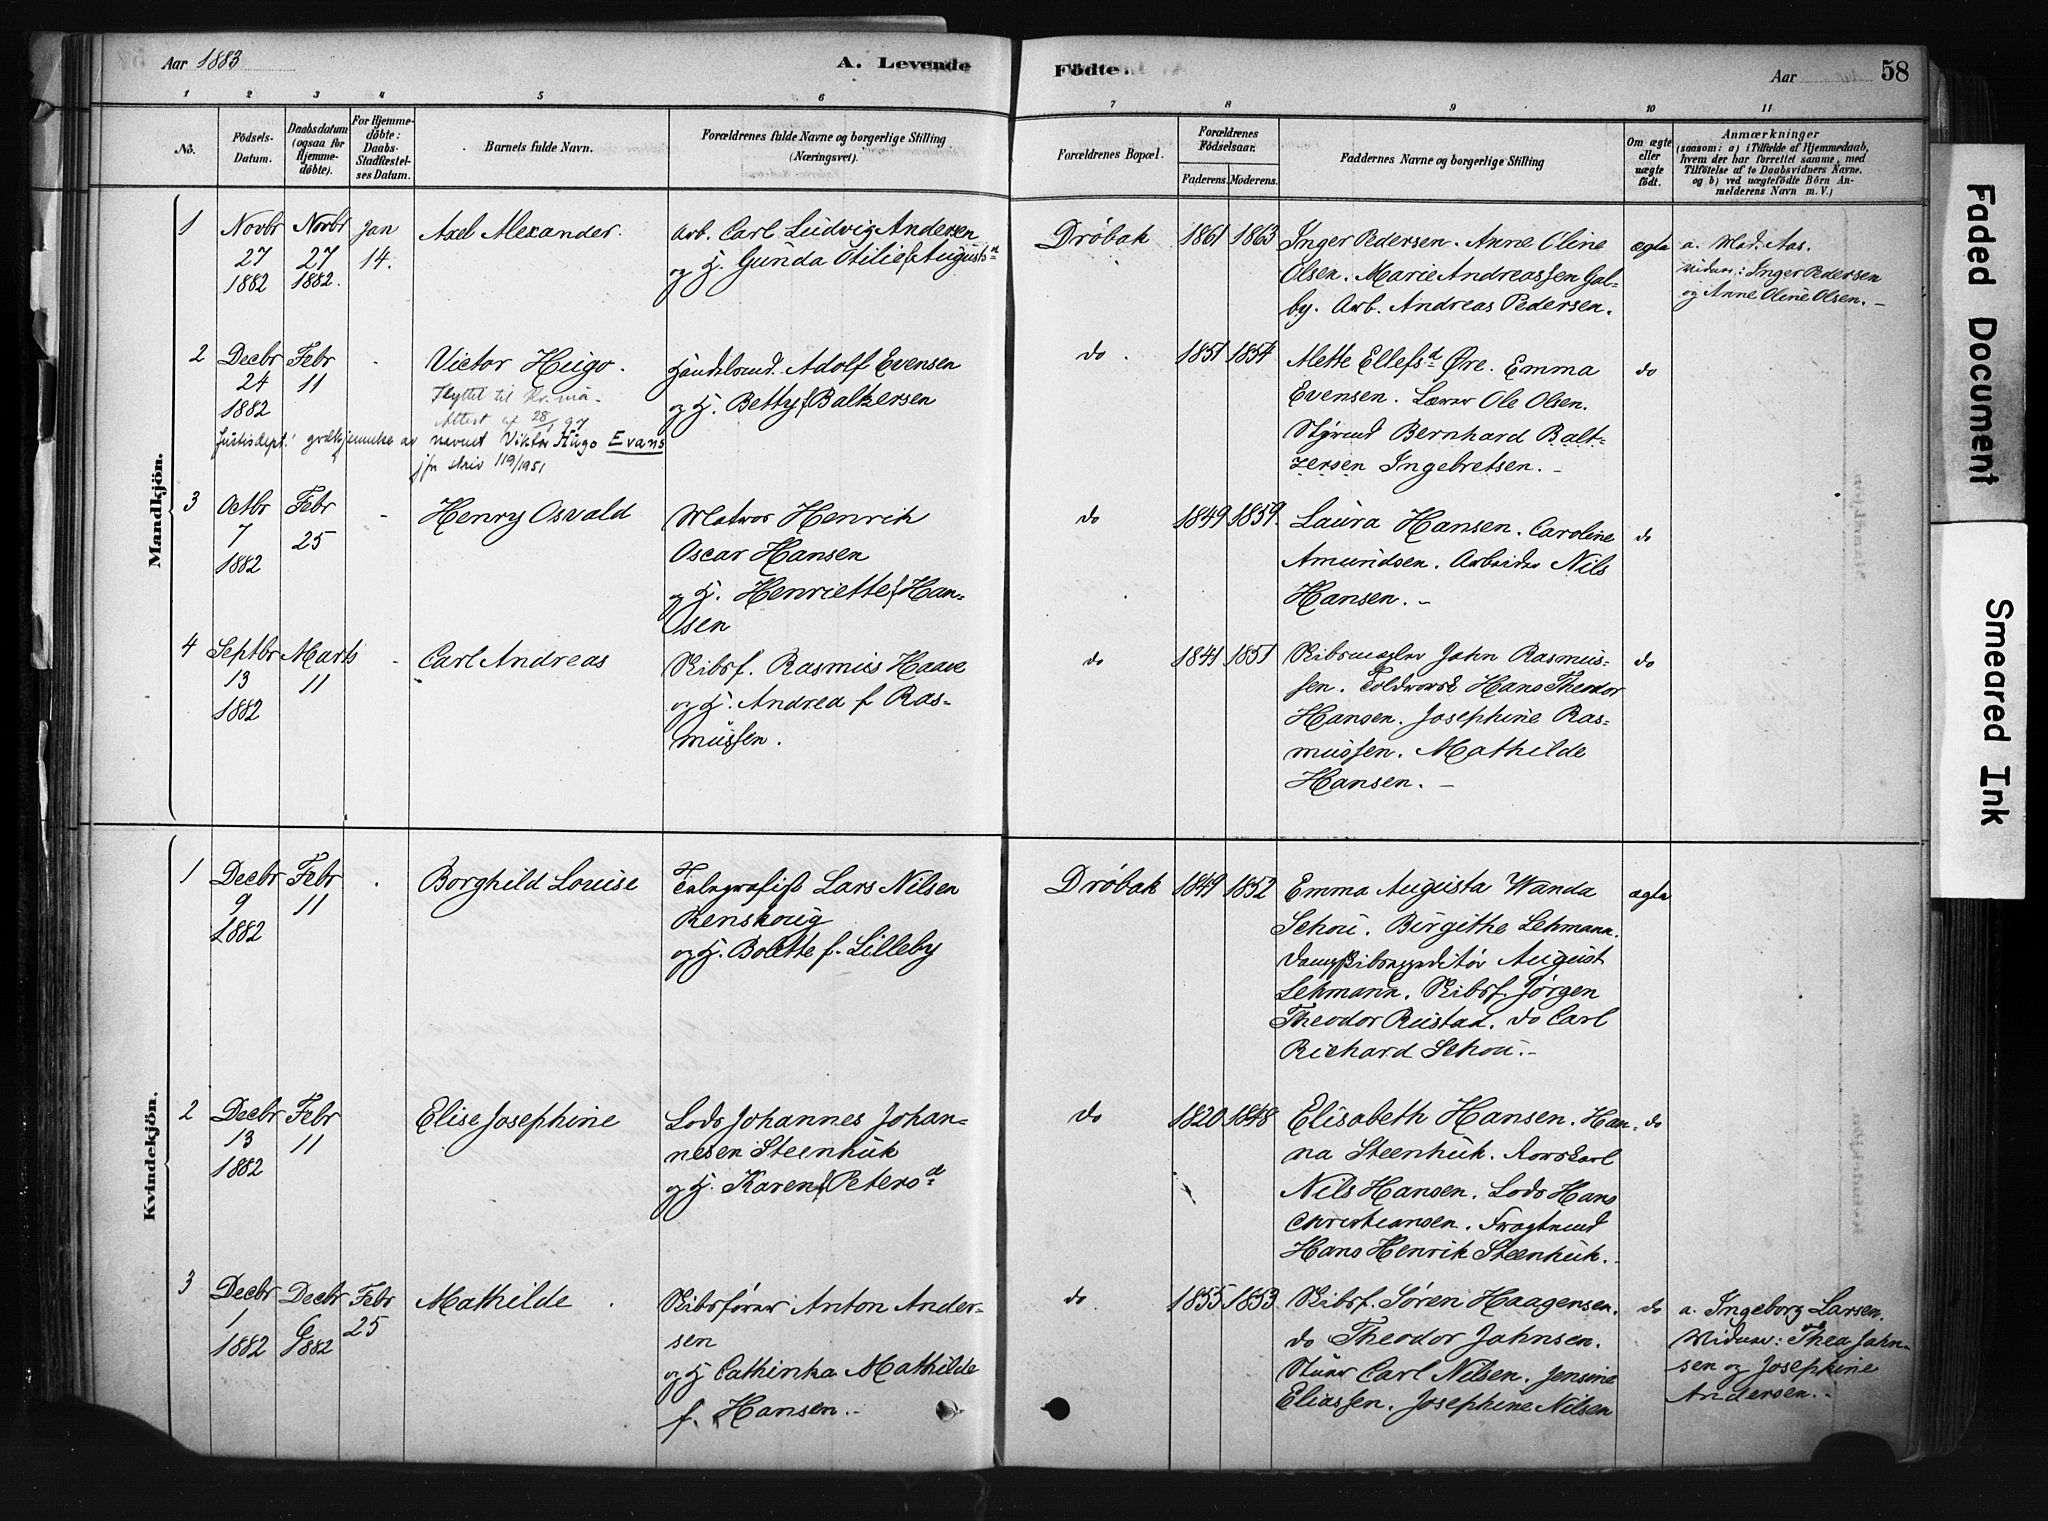 Aar 1883
A. Levende
Födte.
Aar
58
1 2 3 4 5 6 7 8 9 10 11
No.
Födsels-Datum.
Daabsdatum (ogsaa for Hjemmedöbte).
For Hjemmedöbte: Daabs-Stadfæstelses Datum.
Barnets fulde Navn.
Forældrenes fulde Navne og borgerlige Stilling
(Næringsvei).
Forældrenes Bopæl.
Forældrenes Födselsaar.
Faderens. Moderens.
Faddernes Navne og borgerlige Stilling
Om ægte eller uægte födt.
Anmærkninger
(saasom: a) i Tilfælde af Hjemmedaab,
hvem der har forrettet samme, med
Tilföielse af to Daabsvidners Navne.
og b) ved uægtefödte Börn An-
melderens Navn m. V.)
Mandkjön.
1 Novbr Novbr Jan Axel Alexander. Arb. Carl Ludvig Andersen
27 27 14. og H. Gunda Otilie f. Augustsd
1882 1882.
Drøbak 1861 1863 Inger Pedersen. Anne Oline ægte a. Mad. Aas.
Olsen. Marie Andreassen Gal- Vidner: Inger Pedersen
by. Arb. Andreas Pedersen. og Anne Oline Olsen. –
2 Decbr Febr - Victor Hugo. Handelsmd. Adolf Evensen
24 11 Flyttet til Kr.nia. og H. Betty f. Baltzersen
1882 Attest af 28/1 97
Justisdept.' godkjennelse av navnet Viktor Hugo Evans
jfr skriv 119/1951
do 1851 1854 Mette Ellefsd Øre. Emma do
Evensen. Lærer Ole Olsen.
Styrmd Bernhard Balt-
zersen Ingebretsen. –
3 Octbr Febr - Henry Osvald Matros Henrik
7 25 Oscar Hansen
1882 og H. Henriette f. Han-
sen
do 1849 1859. Laura Hansen. Caroline do
Amundsen. Arbeider Nils
Hansen. –
4 Septbr Marts - Carl Andreas Skibsf. Rasmus Haave
13 11 og H. Andrea f. Ras-
1882 mussen.
do 1841 1851 Skibsmægler John Rasmus- do
sen. Toldrorsk Hans Theodor
Hansen. Josephine Ras-
mussen. Mathilde
Hansen. –
Kvindekjön.
1 Decbr Febr - Borghild Louise Telegrafist Lars Nilsen
9 11 Renskoug
1882 og H. Bolette f. Lilleby
Drøbak 1849 1852 Emma Augusta Wanda ægte
Schou. Birgithe Lehmann.
Dampskibsexpeditør August
Lehmann. Skibsf. Jørgen
Theodor Rustad. do Carl
Richard Schou. –
2 Decbr Febr Elise Josephine Lods Johannes Johan-
13 11 nesen Steenhuk
1882 og H. Karen f. Petersd
do 1820 1848 Elisabeth Hansen. Han- do
na Steenhuk. Rorskarl
Nils Hansen. Lods Hans
Christiansen. Fragtmd
Hans Henrik Steenhuk. –
3 Decbr Decbr Febr Mathilde Skibsfører Anton Ander-
1 6 25 sen
1882 1882 og H Cathinka Mathilde
f. Hansen. –
do 1855 1853 Skibsf. Søren Haagensen. do a. Ingeborg Larsen.
do Theodor Jahnsen. Vidner: Thea Jahn-
Stuer Carl Nilsen. Jensine sen og Josephine
Eliassen. Josephine Nilsen Andersen. –
Faded Document
Smeared Ink